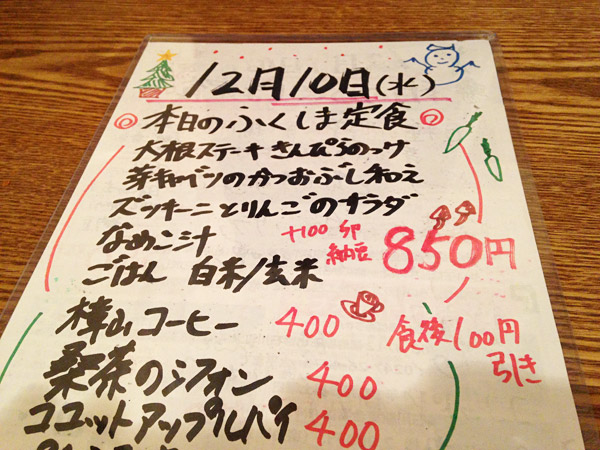 12月10日(水)
本日のふくしま定食
大根ステーキ きんぴらのっけ
芽キャベツのかつおぶし和え
ズッキーニとりんごのサラダ
なめこ汁
+100 卵
納豆
850円
ごはん 白米/玄米
樟山コーヒー 400
食後100円
引き
桑茶のシフォン 400
ココナットアップルパイ 400